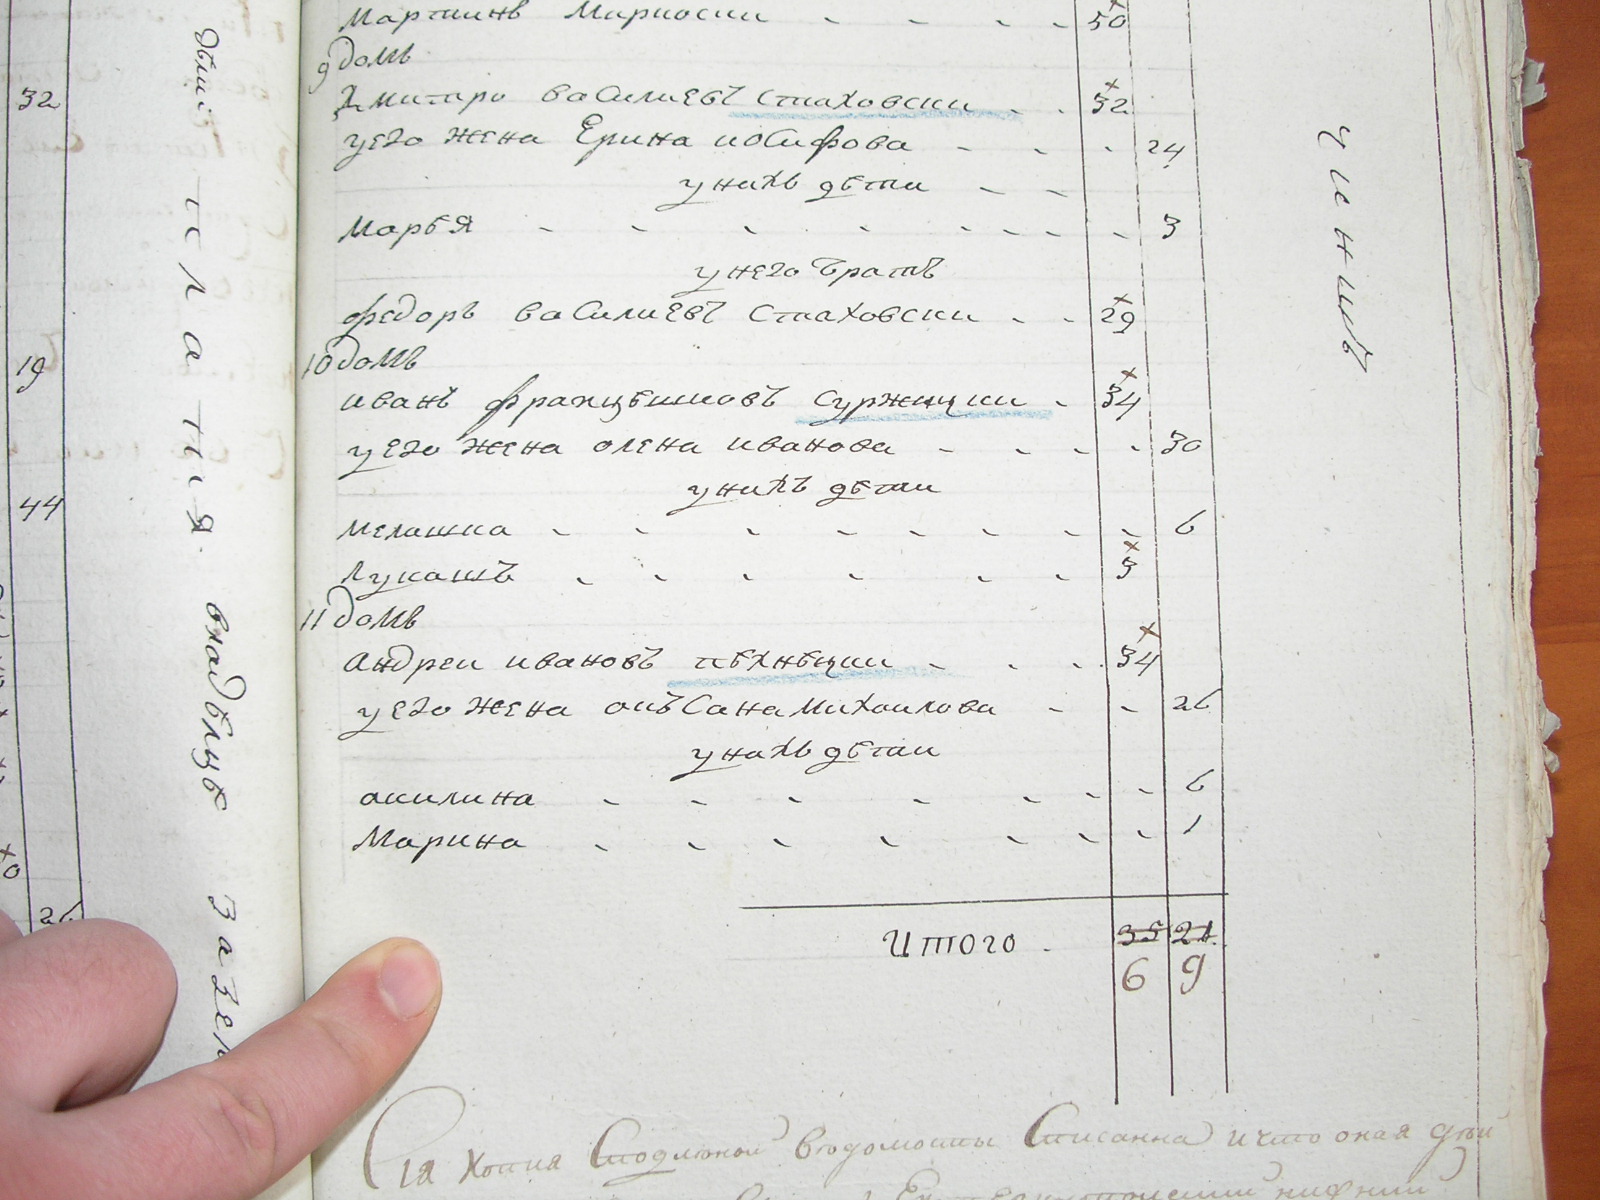 32
19
44
26
тслатия владѣлцѣ
Мартинъ 50
9 домъ
Дмитро василиевъ стаховски 32
у его жена Ерина иосифова 24
у нихъ дѣти
Марѣя 3
у него братъ
федоръ василиевъ стаховски 29
10 домъ
иванъ францѣшковъ суржицки 34
у его жена олена иванова 30
у нихъ дѣти
мелашка 6
лукашъ 3
11 домъ
Андреи ивановъ пѣхнѣцки 34
у его жена окъсана михаилова 26
у нихъ дѣти
акилина 6
Марина 1
Итого 35 21
6 9
чиншъ
Сия копия Сподлѣной вѣдомости Списанна и что оная
нижний